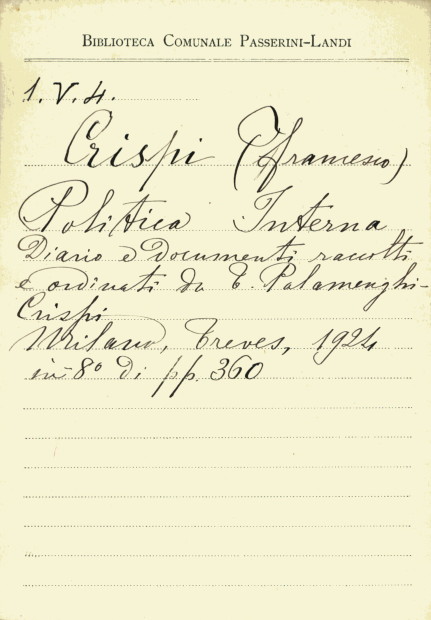 Biblioteca Comunale Passerini-Landi
1.V.4.
Crispi (Francesco)
Politica Interna
Diario e documenti raccolti
e ordinati da T. Palamenghi-
Crispi
Milano, Treves, 1924
in-8º di pp. 360